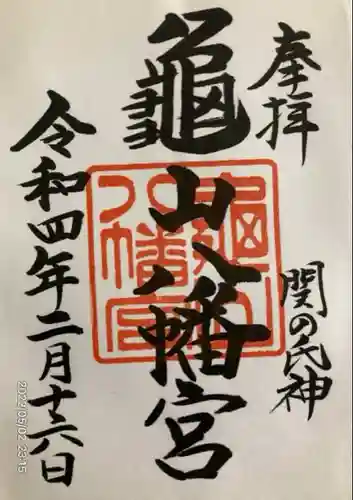 奉拝
関の氏神
龜山八幡宮
龜山八幡宮
令和四年二月十六日
2022/05/02 23:15